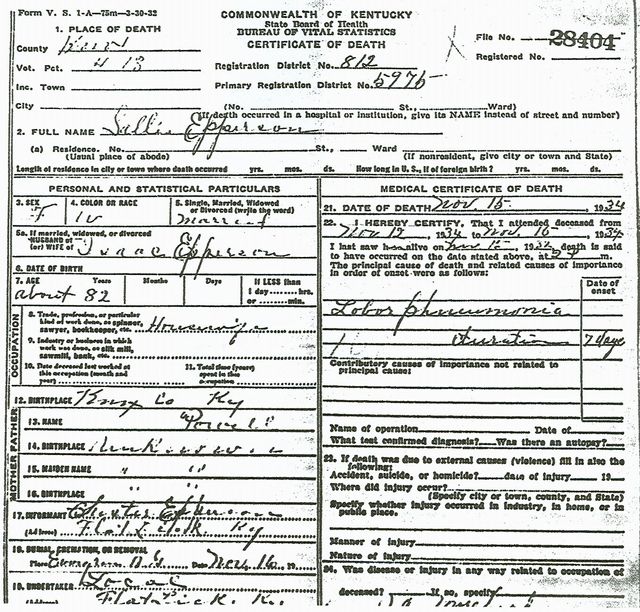 Form V. S. 1-A—75m—3-30-32
COMMONWEALTH OF KENTUCKY
State Board of Health
BUREAU OF VITAL STATISTICS
CERTIFICATE OF DEATH
File No. 28404
Registered No.
1. PLACE OF DEATH
County Knox
Vot. Pct. 4 13
Registration District No. 812
Inc. Town
Primary Registration District No. 5975
City
(No. St., Ward)
(If death occurred in a hospital or institution, give its NAME instead of street and number)
2. FULL NAME Sallie Epperson
(a) Residence. No. St., Ward
(Usual place of abode) (If nonresident, give city or town and State)
Length of residence in city or town where death occurred yrs. mos. ds. How long in U. S., if of foreign birth? yrs. mos. ds.
PERSONAL AND STATISTICAL PARTICULARS
3. SEX
F
4. COLOR OR RACE
W
5. Single, Married, Widowed
or Divorced (write the word)
married
5a. If married, widowed, or divorced
HUSBAND of
(or) WIFE of Isaac Epperson
6. DATE OF BIRTH
7. AGE Years Months Days If LESS than
1 day hrs.
or min.
about 82
OCCUPATION
8. Trade, profession, or particular
kind of work done, as spinner,
sawyer, bookkeeper, etc. Housewife
9. Industry or business in which
work was done, as silk mill,
sawmill, bank, etc.
10. Date deceased last worked at
this occupation (month and
year)
11. Total time (years)
spent in this
occupation
12. BIRTHPLACE Knox Co Ky
FATHER
13. NAME Powell
14. BIRTHPLACE
MOTHER
15. MAIDEN NAME " "
16. BIRTHPLACE " "
17. INFORMANT Epperson
(Address) Flat Lick Ky
18. BURIAL, CREMATION, OR REMOVAL
Place Date Nov 16, 19
19. UNDERTAKER Local
(Address)
MEDICAL CERTIFICATE OF DEATH
21. DATE OF DEATH Nov 15, 1934
22. I HEREBY CERTIFY, That I attended deceased from
Nov 12, 1934 to Nov 15, 1934
I last saw h alive on Nov 15, 1934 death is said
to have occurred on the date stated above, at m.
The principal cause of death and related causes of importance
in order of onset were as follows:
Date of
onset
Lobor pheumonia
duration 7 days
Contributory causes of importance not related to
principal cause:
Name of operation Date of
What test confirmed diagnosis? Was there an autopsy?
23. If death was due to external causes (violence) fill in also the
following:
Accident, suicide, or homicide? date of injury 19
Where did injury occur?
(Specify city or town, county, and State)
Specify whether injury occurred in industry, in home, or in
public place.
Manner of injury
Nature of injury
24. Was disease or injury in any way related to occupation of
deceased? If so, specify